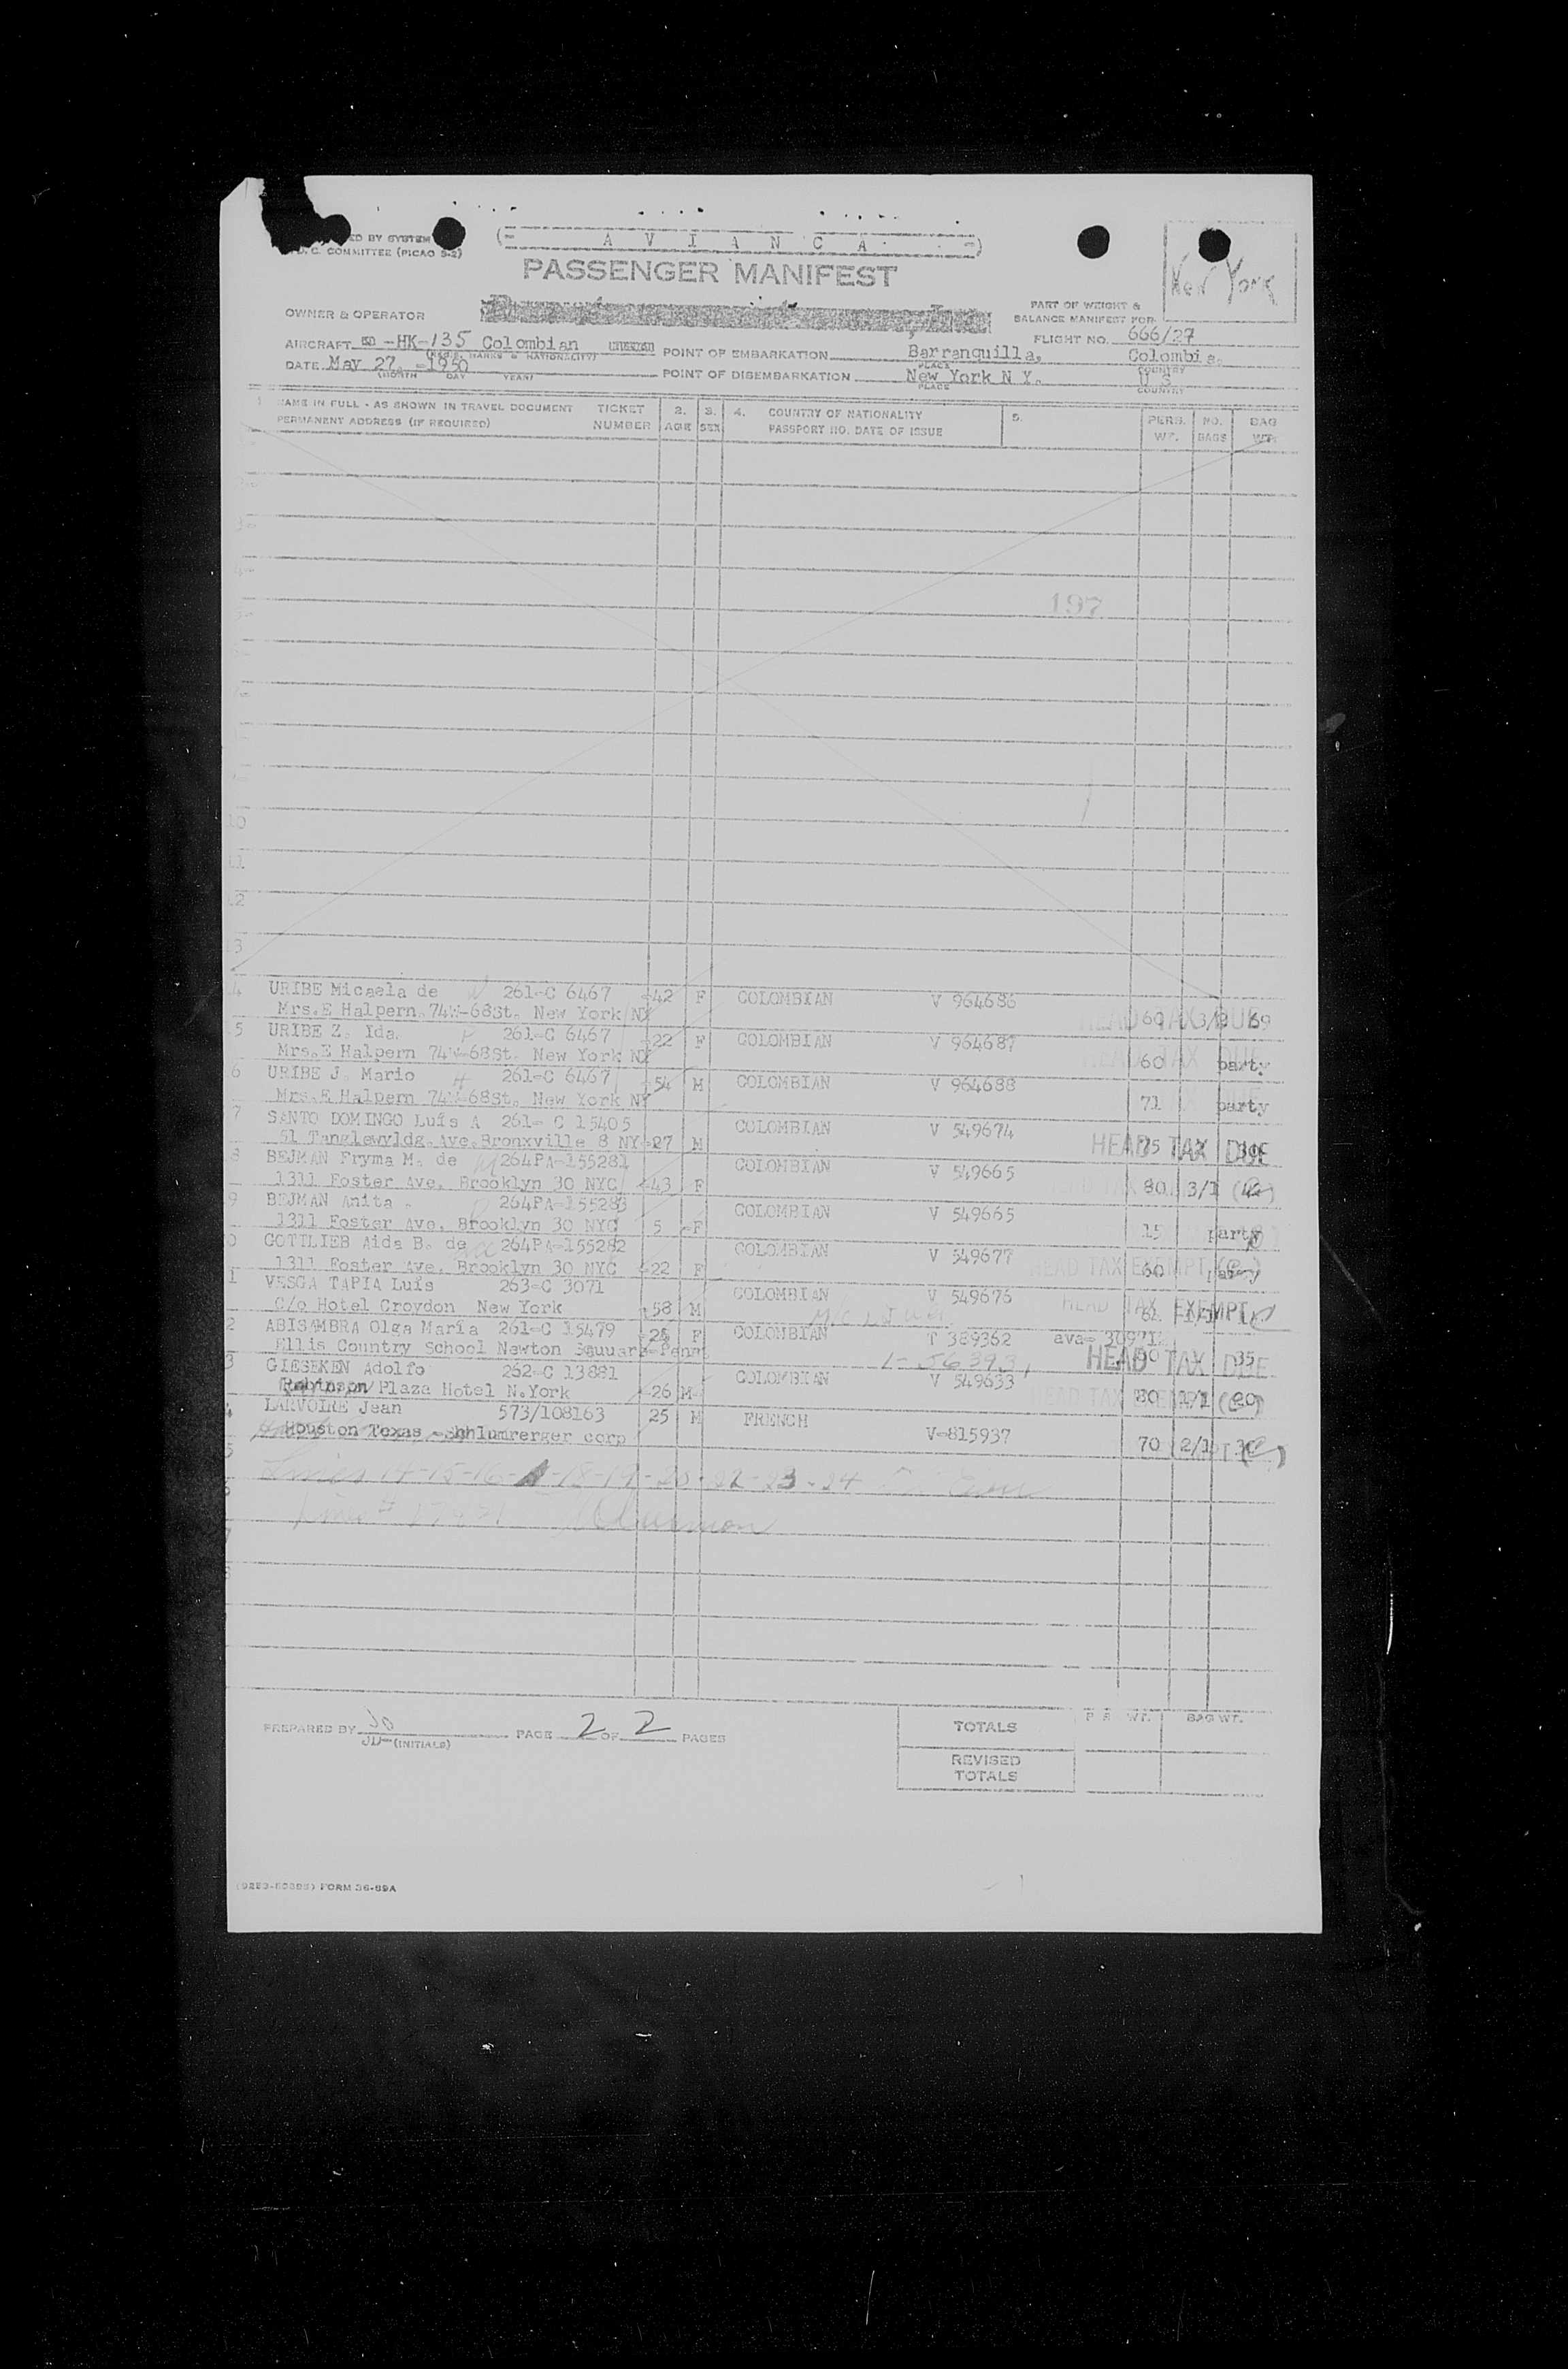 ED BY SYSTEM
D. C. COMMITTEE (PICAO S-2)
(= A V I A N C A =)
PASSENGER MANIFEST
New York
OWNER & OPERATOR
PART OF WEIGHT &
BALANCE MANIFEST FOR
FLIGHT NO. 666/27
AIRCRAFT -HK-135 Colombian
(REG'S. MARKS & NATIONALITY)
POINT OF EMBARKATION Barranquilla, Colombia.
PLACE COUNTRY
DATE May 27, -1950
(MONTH DAY YEAR)
POINT OF DISEMBARKATION New York N Y. U S
PLACE COUNTRY
1. NAME IN FULL - AS SHOWN IN TRAVEL DOCUMENT TICKET 2. 3. 4. COUNTRY OF NATIONALITY 5. PERS. NO. BAG
PERMANENT ADDRESS (IF REQUIRED) NUMBER AGE SEX PASSPORT NO. DATE OF ISSUE WT. BAGS WT.
197
10
11
12
13
4 URIBE Micaela de 261-C 6467 42 F COLOMBIAN V 964686
Mrs.E Halpern 74W-68St. New York NY HEAD TAX DUE 60 3/2 69
5 URIBE Z. Ida. 261-C 6467 22 F COLOMBIAN V 964687
Mrs.E Halpern 74W-68St. New York NY HEAD TAX DUE 60 party
6 URIBE J. Mario 261-C 6467 54 M COLOMBIAN V 964688
Mrs.E Halpern 74W-68St. New York NY 71 party
7 SANTO DOMINGO Luís A 261- C 15405 COLOMBIAN V 549674
51 Tanglewyldg.Ave.Bronxville 8 NY 27 M HEAD TAX DUE
8 BEJMAN Fryma M. de 264PA-155281 COLOMBIAN V 549665
1311 Foster Ave. Brooklyn 30 NYC 43 F 80 3/1
9 BEJMAN Anita 264PA-155283 COLOMBIAN V 549665
1311 Foster Ave. Brooklyn 30 NYC 5 F 15 party
0 GOTTLIEB Aida B. de 264PA-155282 COLOMBIAN V 549677
1311 Foster Ave. Brooklyn 30 NYC 22 F HEAD TAX EXEMPT 60
1 VESGA TAPIA Luís 263-C 3071 COLOMBIAN V 549676
C/o Hotel Croydon New York 58 M HEAD TAX EXEMPT
2 ABISAMBRA Olga María 261-C 15479 F COLOMBIAN T 389362
Ellis Country School Newton HEAD TAX DUE 35
3 GIESEKEN Adolfo 262-C 13881 COLOMBIAN V 549633
Plaza Hotel N.York 26 M 80 1/1 20
4 LARVOIRE Jean 573/108163 25 M FRENCH V-815937
Houston Texas corp 70 2/1
PREPARED BY JD
JD (INITIALS)
PAGE 2 OF 2 PAGES
TOTALS WT. BAG WT.
REVISED
TOTALS
FORM 36-89A